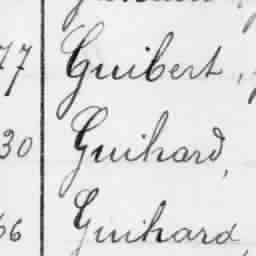 77 Guibert,
30 Guihard,
66 Guihard,